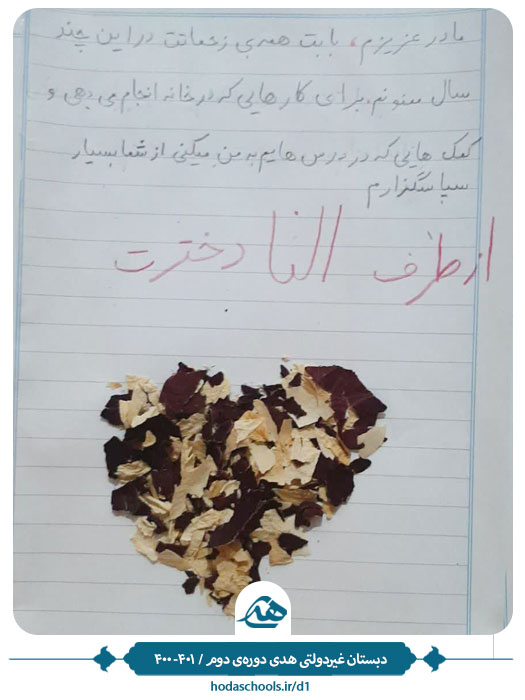 مادر عزیزم، بابت همه‌ی زحماتت در این چند
سال ممنونم، برای کارهایی که در خانه انجام می دهی و
کمک هایی که در درس هایم به من میکنی از شما بسیار
سپاسگزارم
از طرف النا دخترت
هدی
دبستان غیردولتی هدی دوره‌ی دوم / ۴۰۱-۴۰۰
hodaschools.ir/d1